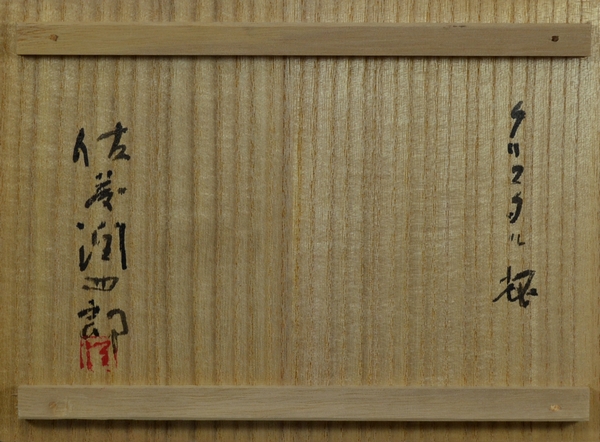 クリスタル
佐藤潤四郎
潤